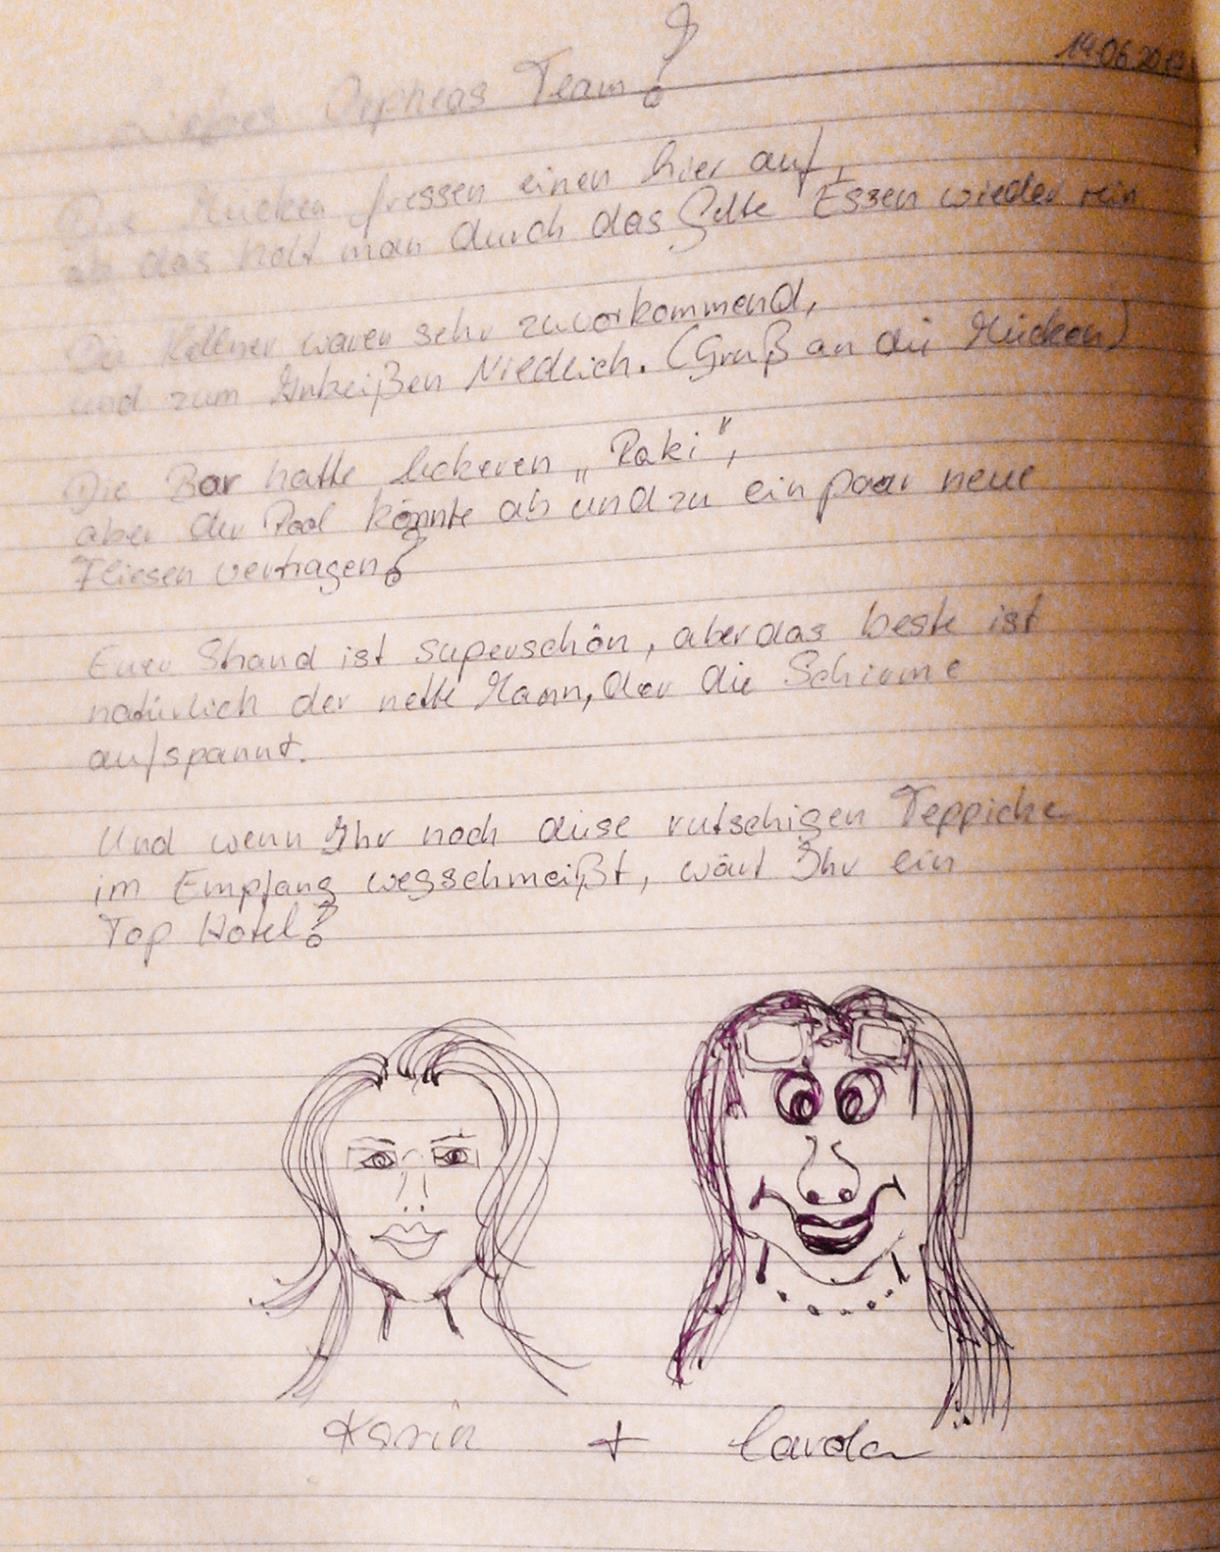 14.06.2019
Liebes Orpheas Team!
Die Mücken fressen einen hier auf,
ab das holt man durch das Gute Essen wieder rein
Die Kellner waren sehr zuvorkommend,
und zum Anbeißen Niedlich. (Gruß an die Mücken)
Die Bar hatte leckeren „Raki",
aber der Pool könnte ab und zu ein paar neue
Fliesen vertragen!
Euer Strand ist superschön, aber das beste ist
natürlich der nette Mann, der die Schirme
aufspannt.
Und wenn Ihr noch diese rutschigen Teppiche
im Empfang wegschmeißt, wärt Ihr ein
Top Hotel!
Karin + Carola